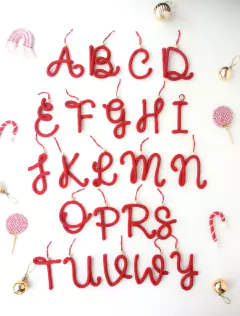 ABCD
EFGHI
JKLMN
OPRS
TUVWY